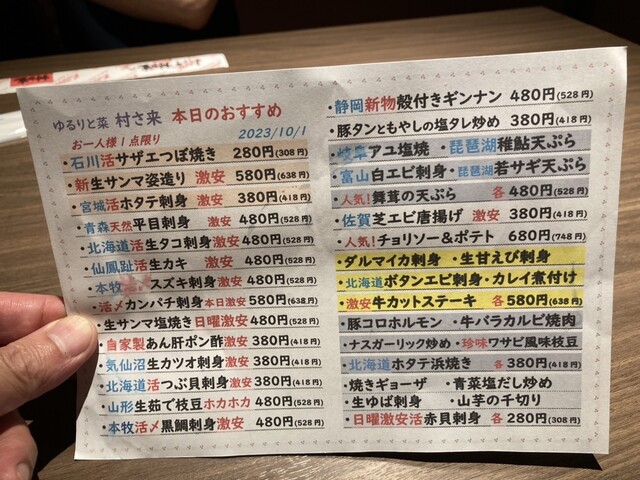 ゆるりと菜 村さ来 本日のおすすめ
お一人様1点限り 2023/10/1
・石川活サザエつぼ焼き 280円(308円)
・新生サンマ姿造り 激安 580円(638円)
・宮城活ホタテ刺身 激安 380円(418円)
・青森天然平目刺身 480円(528円)
・北海道活生タコ刺身激安 480円(528円)
・仙鳳趾活生カキ 激安 480円(528円)
・本牧活〆スズキ刺身激安 480円(528円)
・活〆カンパチ刺身本日激安580円(638円)
・生サンマ塩焼き日曜激安480円(528円)
・自家製あん肝ポン酢激安380円(418円)
・気仙沼生カツオ刺身激安380円(418円)
・北海道活つぶ貝刺身激安380円(418円)
・山形生茹で枝豆ホカホカ 480円(528円)
・本牧活〆黒鯛刺身激安 480円(528円)
・静岡新物殻付きギンナン 480円(528円)
・豚タンともやしの塩タレ炒め 380円(418円)
・岐阜アユ塩焼 ・琵琶湖稚鮎天ぷら
・富山白エビ刺身・琵琶湖若サギ天ぷら
・人気!舞茸の天ぷら 各480円(528円)
・佐賀芝エビ唐揚げ 激安 380円(418円)
・人気!チョリソー&ポテト 680円(748円)
・ダルマイカ刺身 ・生甘えび刺身
・北海道ボタンエビ刺身・カレイ煮付け
・激安牛カットステーキ 各580円(638円)
・豚コロホルモン ・牛バラカルビ焼肉
・ナスガーリック炒め ・珍味ワサビ風味枝豆
・北海道ホタテ浜焼き 各380円(418円)
・焼きギョーザ ・青菜塩だし炒め
・生ゆば刺身 ・山芋の千切り
・日曜激安活赤貝刺身 各280円(308円)